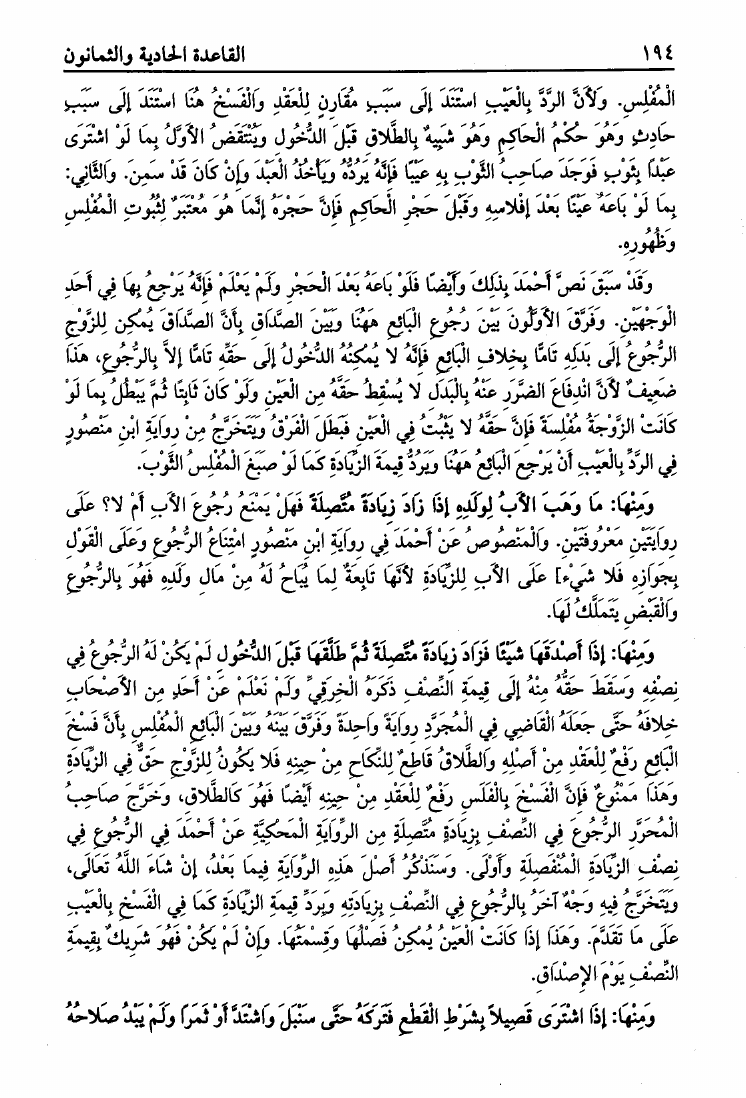 ١٩٤ القاعدة الحادية والثمانون
الْمُفْلِسِ. وَلأَنَّ الرَّدَّ بِالْعَيْبِ اسْتَنَدَ إلَى سَبَبٍ مُقَارِنٍ لِلْعَقْدِ وَالْفَسْخُ هُنَا اسْتَنَدَ إلَى سَبَبٍ
حَادِثٍ وَهُوَ حُكْمُ الْحَاكِمِ وَهُوَ شَبِيهٌ بِالطَّلاَقِ قَبْلَ الدُّخُولِ وَيُنْتَقَضُ الأَوَّلُ بِمَا لَوْ اشْتَرَى
عَبْدًا بِثَوْبٍ فَوَجَدَ صَاحِبُ الثَّوْبِ بِهِ عَيْبًا فَإِنَّهُ يَرُدُّهُ وَيَأْخُذُ الْعَبْدَ وَإِنْ كَانَ قَدْ سَمِنَ. وَالثَّانِي:
بِمَا لَوْ بَاعَهُ عَيْنًا بَعْدَ إفْلاَسِهِ وَقَبْلَ حَجْرِ الْحَاكِمِ فَإِنَّ حَجْرَهُ إنَّمَا هُوَ مُعْتَبَرٌ لِثُبُوتِ الْمُفْلِسِ
وَظُهُورِهِ.
وَقَدْ سَبَقَ نَصُّ أَحْمَدَ بِذَلِكَ وَأَيْضًا فَلَوْ بَاعَهُ بَعْدَ الْحَجْرِ وَلَمْ يَعْلَمْ فَإِنَّهُ يَرْجِعُ بِهَا فِي أَحَدِ
الْوَجْهَيْنِ. وَفَرَّقَ الأَوَّلُونَ بَيْنَ رُجُوعِ الْبَائِعِ هَهُنَا وَبَيْنَ الصَّدَاقِ بِأَنَّ الصَّدَاقَ يُمْكِنُ لِلزَّوْجِ
الرُّجُوعُ إلَى بَدَلِهِ تَامًّا بِخِلاَفِ الْبَائِعِ فَإِنَّهُ لاَ يُمْكِنُهُ الدُّخُولُ إلَى حَقِّهِ تَامًّا إلاَّ بِالرُّجُوعِ، هَذَا
ضَعِيفٌ لأَنَّ انْدِفَاعَ الضَّرَرِ عَنْهُ بِالْبَدَلِ لاَ يُسْقِطُ حَقَّهُ مِنَ الْعَيْنِ وَلَوْ كَانَ ثَابِتًا ثُمَّ يَبْطُلُ بِمَا لَوْ
كَانَتْ الزَّوْجَةُ مُفْلِسَةً فَإِنَّ حَقَّهُ لاَ يَثْبُتُ فِي الْعَيْنِ فَبَطَلَ الْفَرْقُ وَيَتَخَرَّجُ مِنْ رِوَايَةِ ابْنِ مَنْصُورٍ
فِي الرَّدِّ بِالْعَيْبِ أَنْ يَرْجِعَ الْبَائِعُ هَهُنَا وَيَرُدُّ قِيمَةَ الزِّيَادَةِ كَمَا لَوْ صَبَغَ الْمُفْلِسُ الثَّوْبَ.
وَمِنْهَا: مَا وَهَبَ الأَبُ لِوَلَدِهِ إذَا زَادَ زِيَادَةً مُتَّصِلَةً فَهَلْ يَمْنَعُ رُجُوعَ الأَبِ أَمْ لاَ؟ عَلَى
رِوَايَتَيْنِ مَعْرُوفَتَيْنِ. وَالْمَنْصُوصُ عَنْ أَحْمَدَ فِي رِوَايَةِ ابْنِ مَنْصُورٍ امْتِنَاعُ الرُّجُوعِ وَعَلَى الْقَوْلِ
بِجَوَازِهِ فَلاَ شَيْءَ] عَلَى الأَبِ لِلزِّيَادَةِ لأَنَّهَا تَابِعَةٌ لِمَا يُبَاحُ لَهُ مِنْ مَالِ وَلَدِهِ فَهُوَ بِالرُّجُوعِ
وَالْقَبْضِ يَتَمَلَّكُ لَهَا.
وَمِنْهَا: إذَا أَصْدَقَهَا شَيْئًا فَزَادَ زِيَادَةً مُتَّصِلَةً ثُمَّ طَلَّقَهَا قَبْلَ الدُّخُولِ لَمْ يَكُنْ لَهُ الرُّجُوعُ فِي
نِصْفِهِ وَسَقَطَ حَقُّهُ مِنْهُ إلَى قِيمَةِ النِّصْفِ ذَكَرَهُ الْخِرَقِيِّ وَلَمْ نَعْلَمْ عَنْ أَحَدٍ مِنَ الأَصْحَابِ
خِلاَفَهُ حَتَّى جَعَلَهُ الْقَاضِي فِي الْمُجَرَّدِ رِوَايَةً وَاحِدَةً وَفَرَّقَ بَيْنَهُ وَبَيْنَ الْبَائِعِ الْمُفْلِسِ بِأَنَّ فَسْخَ
الْبَائِعِ رَفْعٌ لِلْعَقْدِ مِنْ أَصْلِهِ وَالطَّلاَقُ قَاطِعٌ لِلنِّكَاحِ مِنْ حِينِهِ فَلاَ يَكُونُ لِلزَّوْجِ حَقٌّ فِي الزِّيَادَةِ
وَهَذَا مَمْنُوعٌ فَإِنَّ الْفَسْخَ بِالْفَلَسِ رَفْعٌ لِلْعَقْدِ مِنْ حِينِهِ أَيْضًا فَهُوَ كَالطَّلاَقِ، وَخَرَّجَ صَاحِبُ
الْمُحَرَّرِ الرُّجُوعَ فِي النِّصْفِ بِزِيَادَةٍ مُتَّصِلَةٍ مِنَ الرِّوَايَةِ الْمَحْكِيَّةِ عَنْ أَحْمَدَ فِي الرُّجُوعِ فِي
نِصْفِ الزِّيَادَةِ الْمُنْفَصِلَةِ وَأَوْلَى. وَسَنَذْكُرُ أَصْلَ هَذِهِ الرِّوَايَةِ فِيمَا بَعْدُ، إنْ شَاءَ اللَّهُ تَعَالَى،
وَيَتَخَرَّجُ فِيهِ وَجْهٌ آخَرُ بِالرُّجُوعِ فِي النِّصْفِ بِزِيَادَتِهِ وَيَرِدُّ قِيمَةَ الزِّيَادَةِ كَمَا فِي الْفَسْخِ بِالْعَيْبِ
عَلَى مَا تَقَدَّمَ. وَهَذَا إذَا كَانَتْ الْعَيْنُ يُمْكِنُ فَصْلُهَا وَقِسْمَتُهَا. وَإِنْ لَمْ يَكُنْ فَهُوَ شَرِيكٌ بِقِيمَةِ
النِّصْفِ يَوْمَ الإِصْدَاقِ.
وَمِنْهَا: إذَا اشْتَرَى قَصِيلاً بِشَرْطِ الْقَطْعِ فَتَرَكَهُ حَتَّى سَنْبَلَ وَاشْتَدَّ أَوْ ثَمَرًا وَلَمْ يَبْدُ صَلاَحُهُ